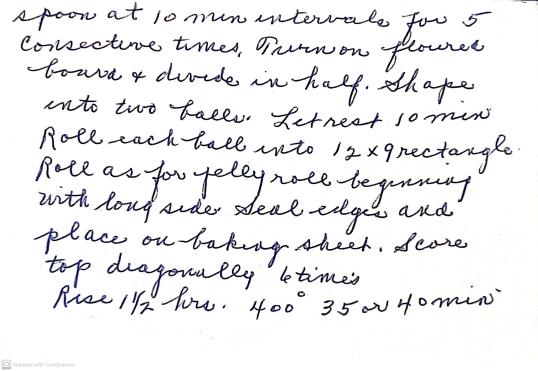 spoon at 10 min intervals for 5
consective times, Turn on floured
board & divide in half. Shape
into two balls. Let rest 10 min
Roll each ball into 12 x 9 rectangle.
Roll as for jelly roll beginning
with long side. Seal edges and
place on baking sheet. Score
top diagonally 6 times
Rise 1 1/2 hrs. 400° 35 or 40 min
CS Scanned with CamScanner